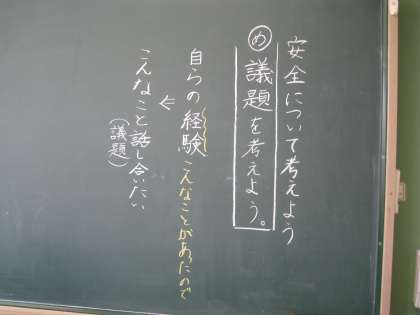 安全について考えよう
め 議題を考えよう。
自らの経験こんなことがあったので
⇐
こんなこと話し合いたい
(議題)